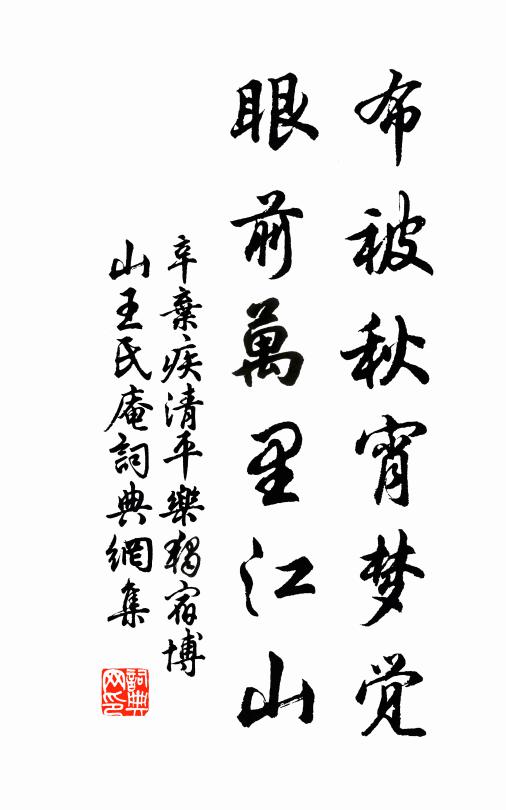 布被秋宵梦觉
眼前萬里江山
辛棄疾清平樂獨宿博
山王氏庵詞典網集
詞典网印